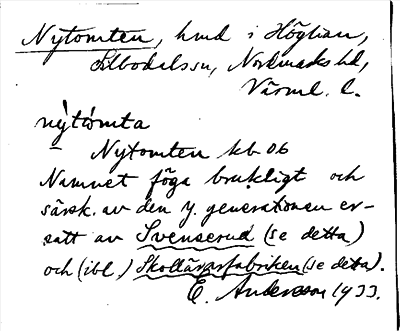 Nytomten, hmd i Höglian,
Silbodals sn, Nordmarks hd,
Värml. l.
nỳtòmta
Nytomten kb 06
Namnet föga brukligt och
särsk. av den y. generationen er-
satt av Svenserud (se detta)
och (ibl.) Skollärarfabriken (se detta).
E. Andersson 1933.